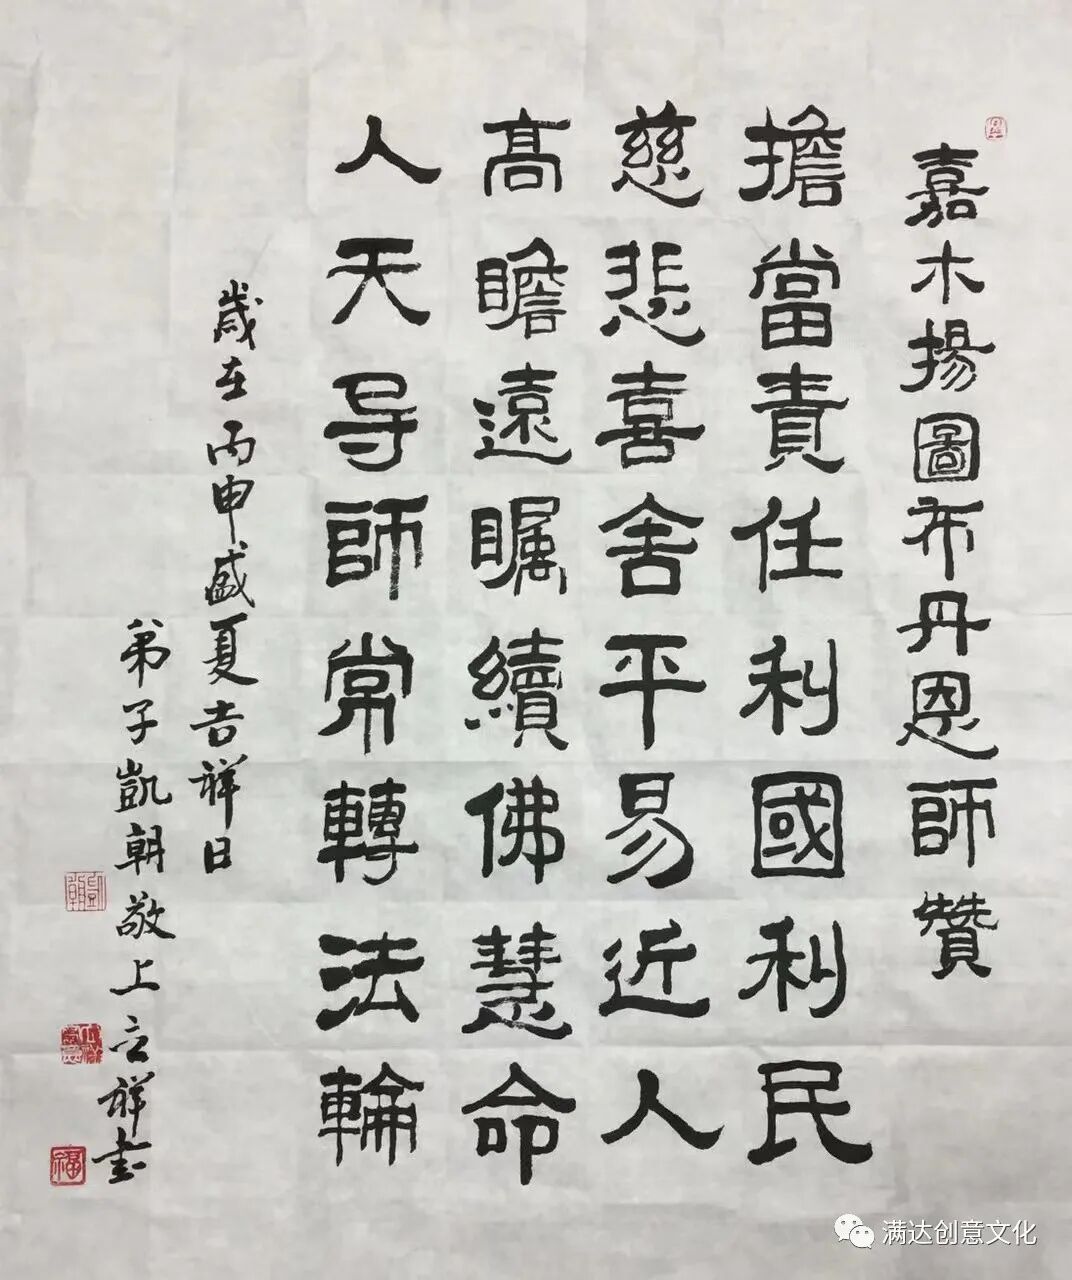 嘉木揚圖布丹恩師贊
擔當責任利國利民
慈悲喜舍平易近人
高瞻遠矚續佛慧命
人天导師常轉法輪
歲在丙申盛夏吉祥日
弟子凱朝敬上言祥书
满达创意文化